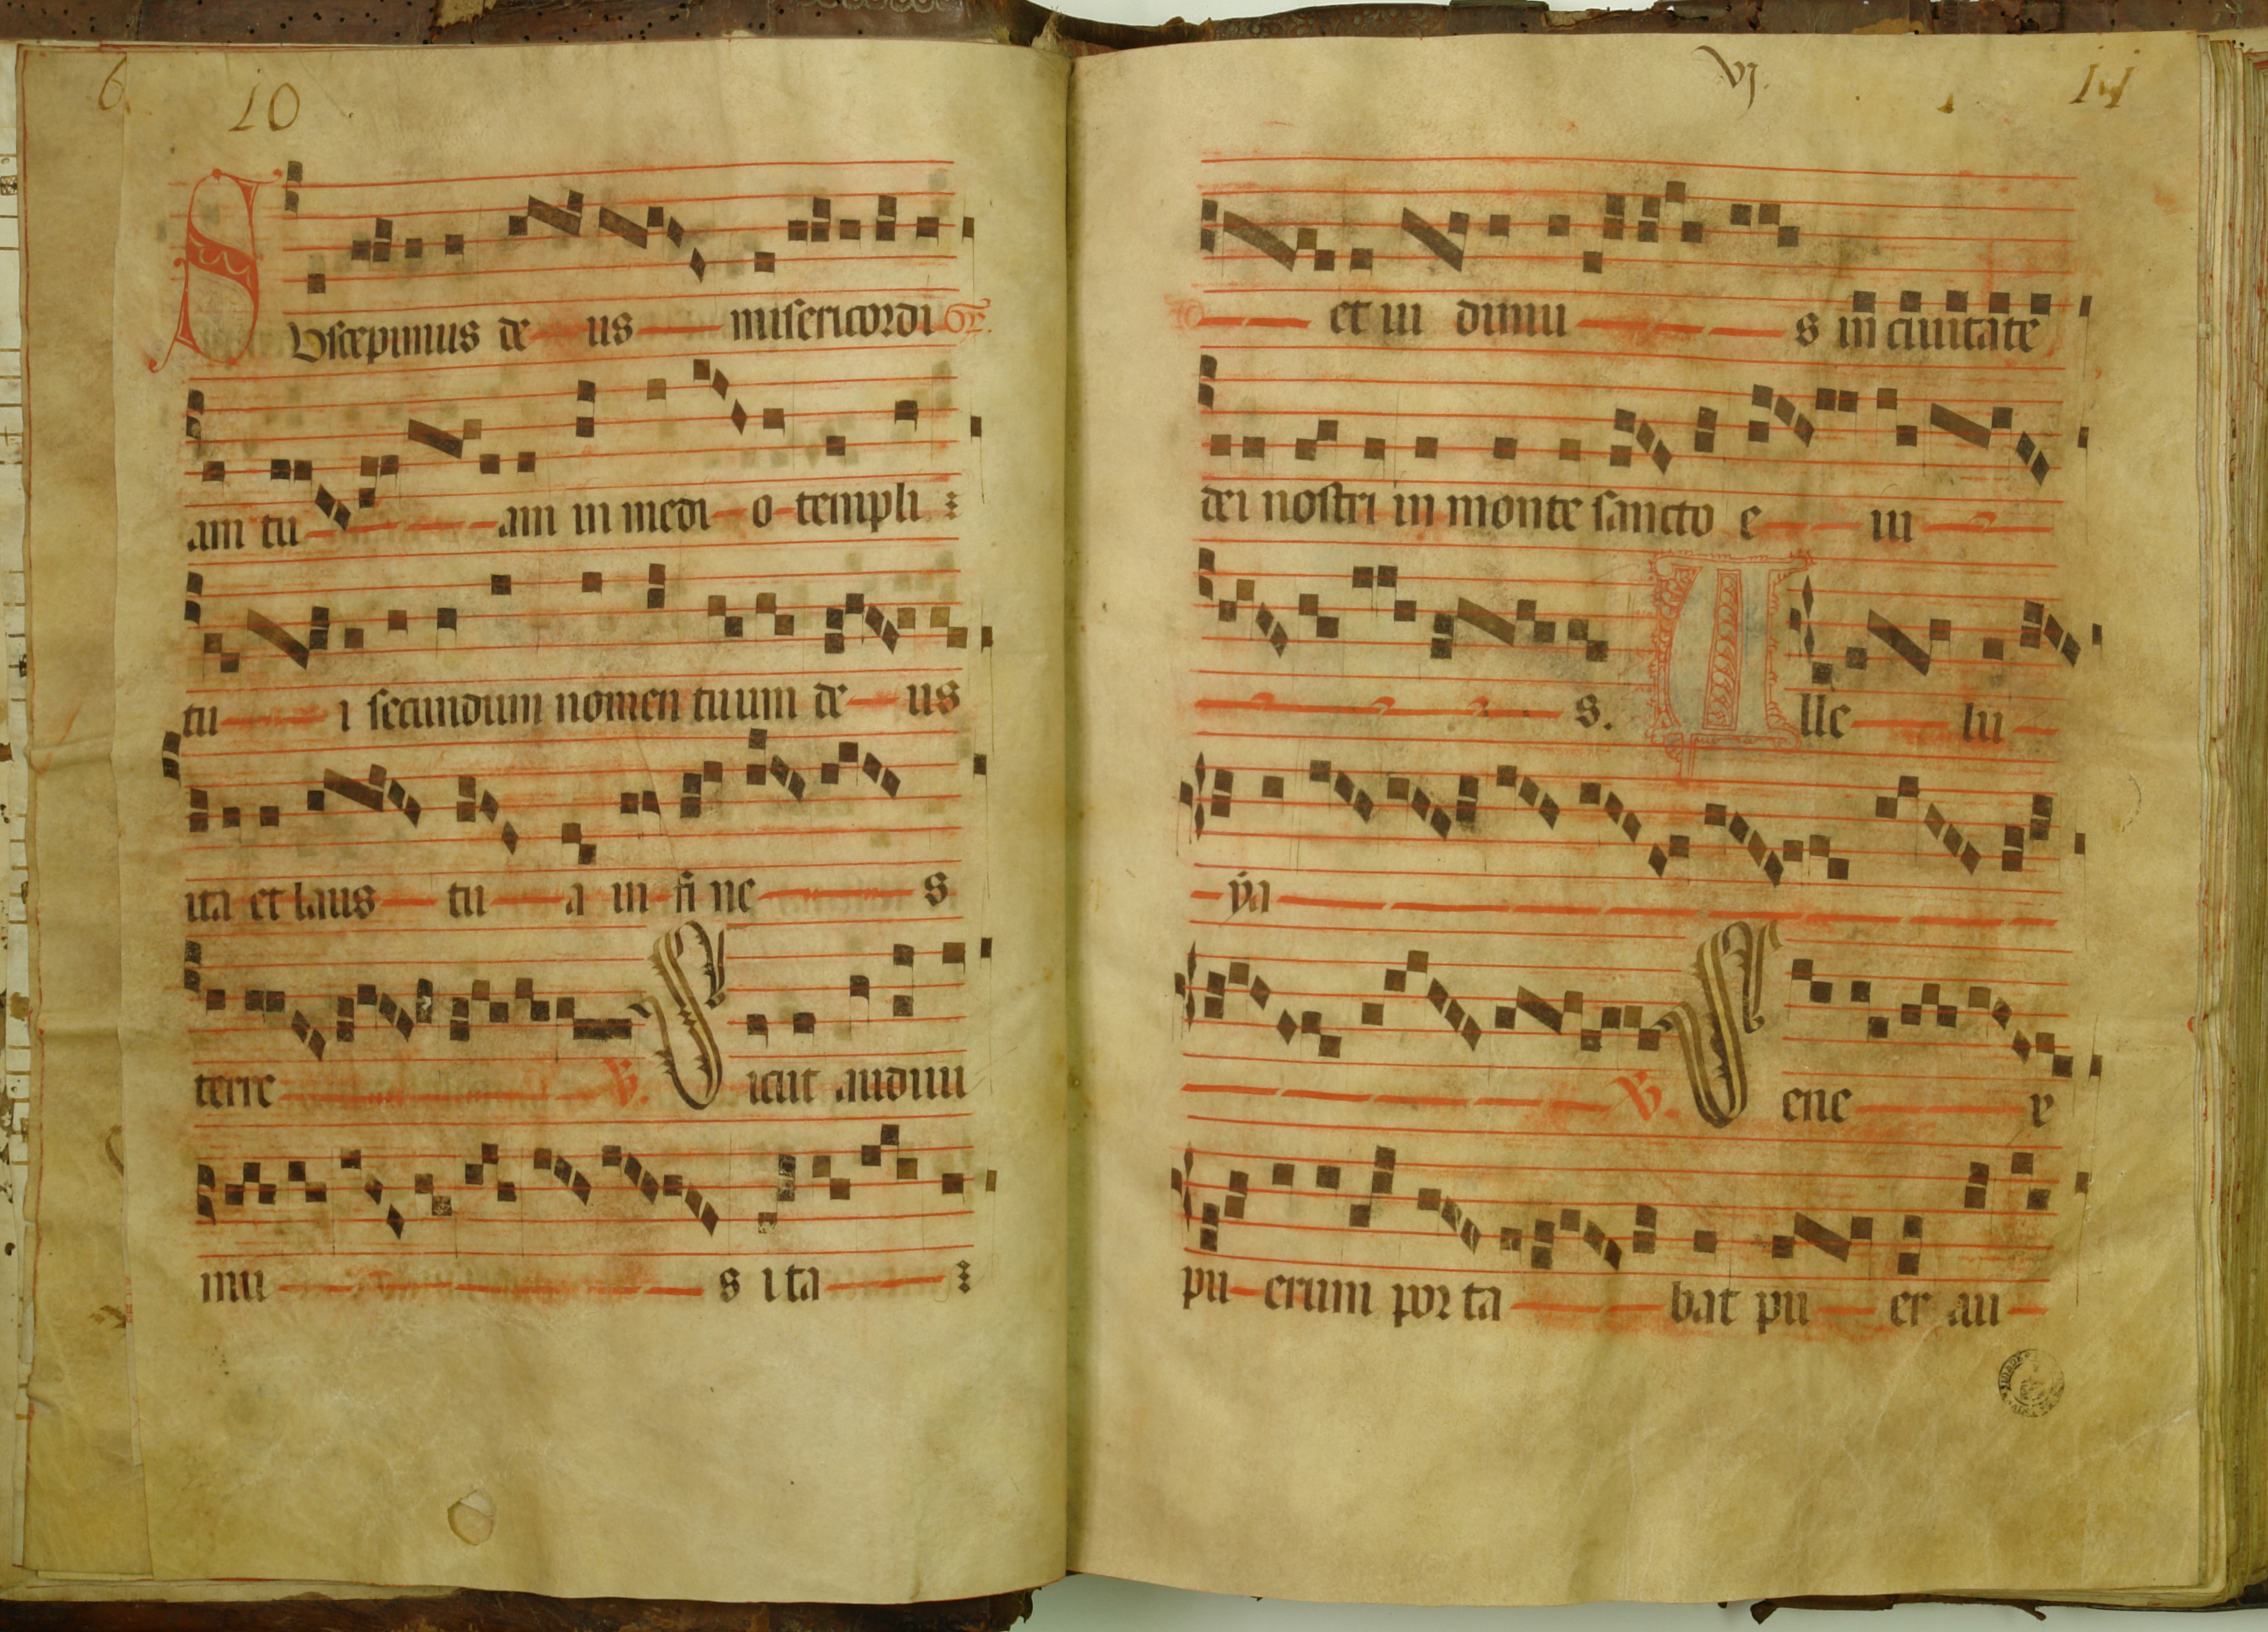 6
10
Uscepimus de us misericordi Gr.
am tu am in medi o templi
tu i secundum nomen tuum de us
ita et laus tu a in fi ne s
terre V. Sicut audivi
mu s ita
VJ.
et ui dimu s in ciuitate
dei nostri in monte sancto e iu
s. Alle lu
ya
V. Sene x
pu erum por ta bat pu er au